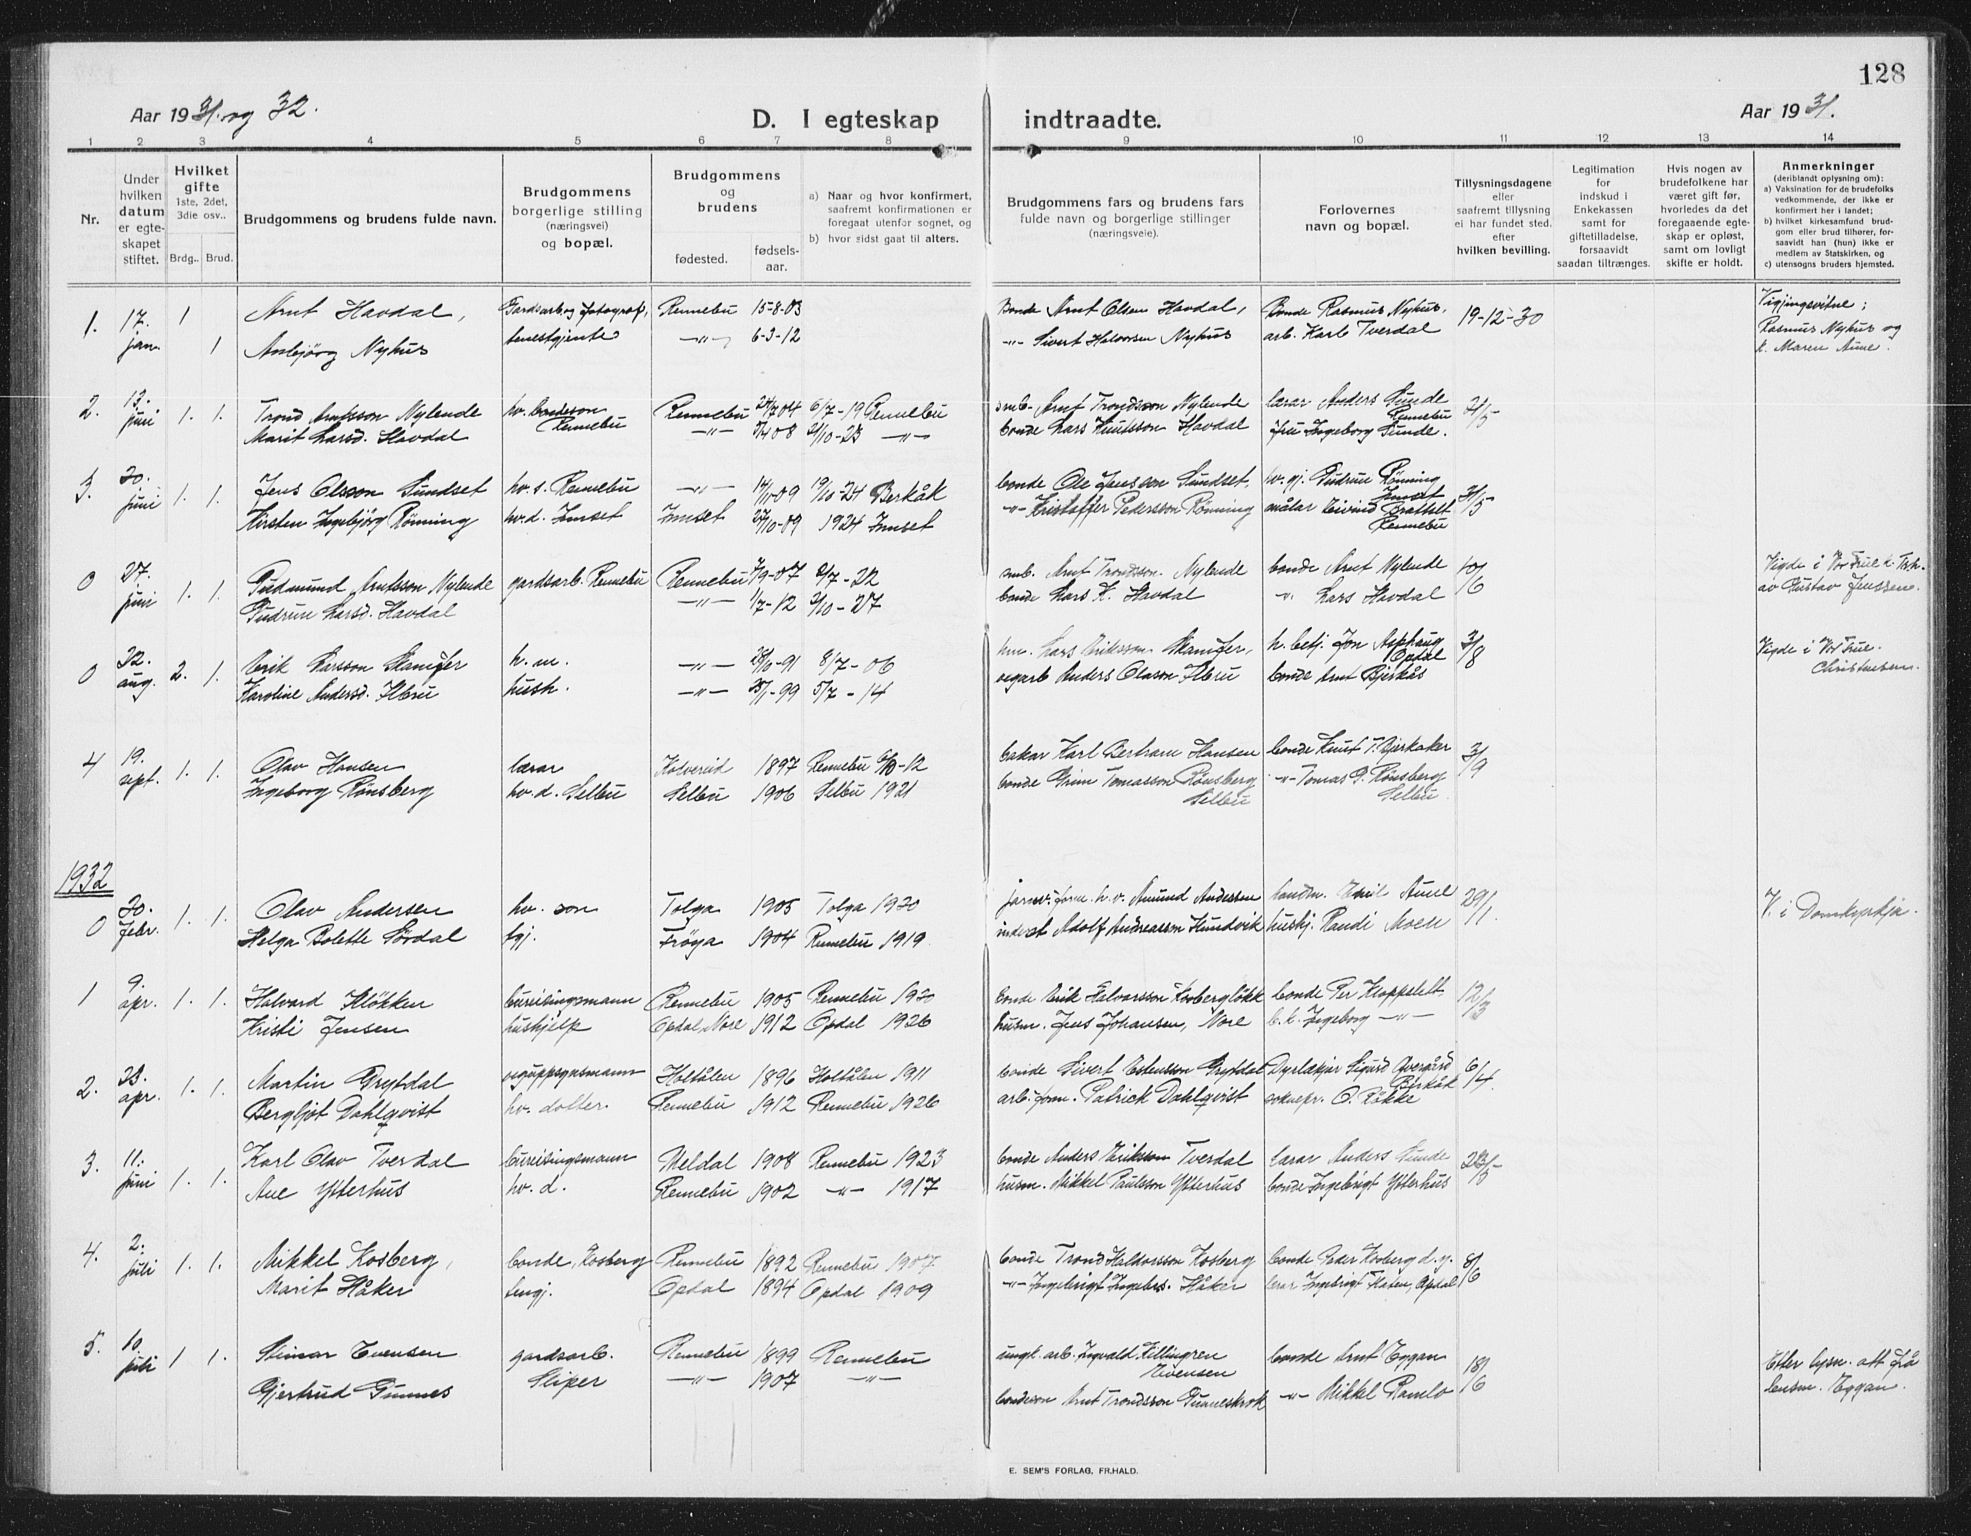 128
Aar 1931. og 32.
D. I egteskap indtraadte.
Aar 1931.
1 2 3 4 5 6 7 8 9 10 11 12 13 14
Nr.
Under hvilken datum er egteskapet stiftet.
Hvilket gifte 1ste, 2det, 3die osv..
Brdg.. Brud.
Brudgommens og brudens fulde navn.
Brudgommens borgerlige stilling (næringsvei) og bopæl.
Brudgommens og brudens
fødested. fødsels-aar.
a) Naar og hvor konfirmert, saafremt konfirmationen er foregaat utenfor sognet, og
b) hvor sidst gaat til alters.
Brudgommens fars og brudens fars fulde navn og borgerlige stillinger (næringsveie).
Forlovernes navn og bopæl.
Tillysningsdagene eller saafremt tillysning ei har fundet sted. efter hvilken bevilling.
Legitimation for indskud i Enkekassen samt for giftetilladelse, forsaavidt saadan tiltrænges.
Hvis nogen av brudefolkene har været gift før, hvorledes da det foregaaende egteskap er opløst, samt om lovligt skifte er holdt.
Anmerkninger (deriblandt oplysning om):
a) Vaksination for de brudefolks vedkommende, der ikke er konfirmert her i landet;
b) hvilket kirkesamfund brudgom eller brud tilhører, forsaavidt han (hun) ikke er medlem av Statskirken, og
c) utensogns bruders hjemsted.
1. 17. jan. 1 Arnt Havdal, Gardsarb. og fotograf, Rennebu 15-8-03 Bonde Arnt Olsen Havdal, Bonde Rasmus Nyhus, 19-12-30 Vigjingsvitne;
1 Ansbjørg Nyhus tenestgjente -"- 6-3-12 -"- Sivert Halvorsen Nyhus arb. Karl Tverdal Rasmus Nyhus og
k. Maren Aune.
2. 13. juni 1. 1. Trond Arntsson Nylende hv. bondeson Rennebu Rennebu 24/7 04 6/7-19 Rennebu smb. Arnt Trondsson Nylende lærar Anders Sunde Rennebu 31/5
Marit Larsd. Havdal -"- 08 10-23 -"- bonde Lars Knutsson Havdal fru Ingeborg Sunde.
3. 20. juni 1. 1. Jens Olsson Sundset hv. s. Rennebu -"- 09 19/10-24 Berkåk bonde Ole Jensson Sundset, hv. gj. Gudrun Rønning Innset 31/5
Kirsten Ingebjørg Rønning hv. d. Innset Innset 27/10-09 1924 Innset -"- Kristoffer Pedersson Rønning målar Eivind Brattset Rennebu
0 27. juni 1. 1. Gudmund Arntsson Nylende gardsarb. Rennebu Rennebu 7/9-07 2/7-22 smb. Arnt Trondsson Nylende bonde Arnt Nylende 10/6 Vigde i Vor Frue k. Trh.
Gudrun Larsd. Havdal -"- 1/7-12 2/10-27 bonde Lars K. Havdal " Lars Havdal av Gustav Jenssen.
0 22. aug. 2. 1. Erik Larsson Skamfer h. m. -"- 10-91 8/7-06 hm. Lars Eriksson Skamfer, h. betj. Jon Asphaug Opdal 3/8 Vigde i Vor Frue.
Karoline Andersd. Flbru hush. -"- 25/1-99 5/7-14 vegarb Anders Olason Flbru bonde Arnt Bjerkås Christensen.
4 19. sept. 1. 1. Olav Hansen lærar Kolvereid 1897 Rennebu 6/10-12 bakar Karl Bertram Hansen bonde Knut T. Bjerkaker 3/9
Ingeborg Rønsberg hv. d. Selbu Selbu 1906 Selbu 1921 bonde Grim Tomasson Rønsberg Selbu -"- Tomas G. Rønsberg Selbu.
1932
0 20. febr. 1. 1. Olav Andersen hv. son Tolga 1905 Tolga 1920 jarnv. form. h. v. Amund Andersen handm. Emil Aune 29/1 V. i Domkyrkja.
Helga Bolette Sørdal tgj. Frøya 1904 Rennebu 1919. inderst Adolf Andreasson Hundvik hushj. Randi Moen
1 9. apr. 1. 1. Halvard Kløkken bureisingsmann Rennebu 1905 Rennebu 1920 bonde Erik Halvorsson Kosbergløkk bonde Per Kloppslett 12/3
Kristi Jensen hushjelp Opdal, Nore 1912 Opdal 1926 husm. Jens Johansen, Nore b. k. Ingeborg -"-
2. 23. apr. 1. 1. Martin Grytdal veguppsynsmann Holtålen 1896 Holtålen 1911 bonde Sivert Estensson Grytdal Dyrlækjar Sigurd Øvergård Berkåk 6/4.
Bergljot Dahlqvist hv. dotter. Rennebu 1912 Rennebu 1926 arb. form. Patrick Dahlqvist soknepr. O. Røkke
3. 11. juni 1. 1. Karl Olav Tverdal bureisingsmann Meldal 1908 Rennebu 1923 bonde Anders Eriksson Tverdal lærar Anders Sunde 23/5
Ane Ytterhus hv. d. Rennebu 1902 -"- 1917 husm. Mikkel Paulsson Ytterhus bonde Ingebrigt Ytterhus
4. 2. juli 1. 1. Mikkel Kosberg, bonde, Kosberg Rennebu 1892 Rennebu 1907 bonde Trond Haldorsson Kosberg bonde Peder Kosberg d. y. 8/6
Marit Håker tengj. Opdal 1894 Opdal 1909 -"- Ingebrigt Ingebrs. Håker lærar Ingebrigt Flaten, Opdal
5. 10. juli 1 1. Steinar Evensen gardsarb. Rennebu 1899 Rennebu ungk. arb. Ingvald Killingren Evensen bonde Arnt Eggan 18/6 Etter lysn. att. frå
Gjertrud Gunnes Sliper -"- 1907 -"- bondeson Arnt Trondsson Gunneskrok -"- Mikkel Ramlo lensm. Eggan.
E. SEM'S FORLAG, FR.HALD.